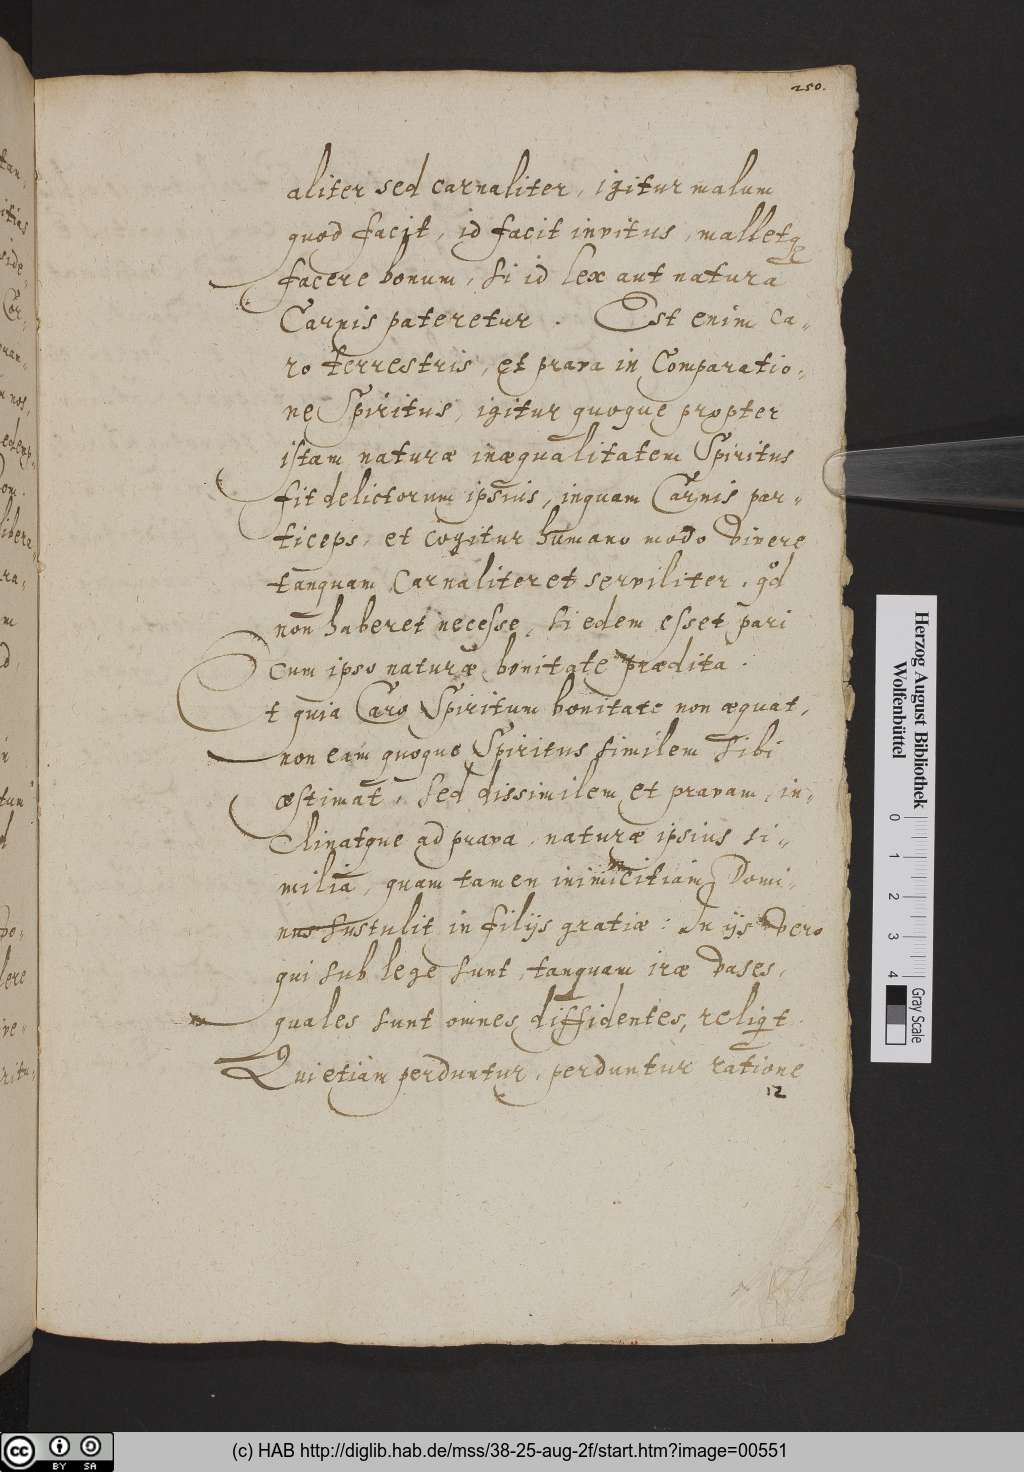 250.
aliter sed carnaliter, igitur malum
quod facit, id facit invitus, malletq̃
facere bonum, si id lex aut natura
Carnis pateretur. Est enim ca-
ro terrestris, et prava in Comparatio-
ne Spiritus, igitur quoque propter
istam naturæ inæqualitatem Spiritus
fit delictorum ipsius, inquam Carnis par-
ticeps, et cogitur humano modo vivere
tanquam Carnaliter et serviliter, qd
non haberet necesse, si edem esset pari
cum ipso naturæ bonitate prædita.
Et quia Caro Spiritum bonitate non æquat,
non eam quoque Spiritus similem sibi
æstimat, sed dissimilem et pravam, in-
clinatque ad prava, naturæ ipsius si-
milia, quam tamen inimicitiam Domi-
nus sustulit in filijs gratiæ: In ijs vero
qui sub lege sunt, tanquam iræ vases,
quales sunt omnes diffidentes, reliqt.
Qui etiam perduntur, perduntur ratione
12
Herzog August Bibliothek
Wolfenbüttel
0 1 2 3 4
Gray Scale
cc BY SA
(c) HAB http://diglib.hab.de/mss/38-25-aug-2f/start.htm?image=00551